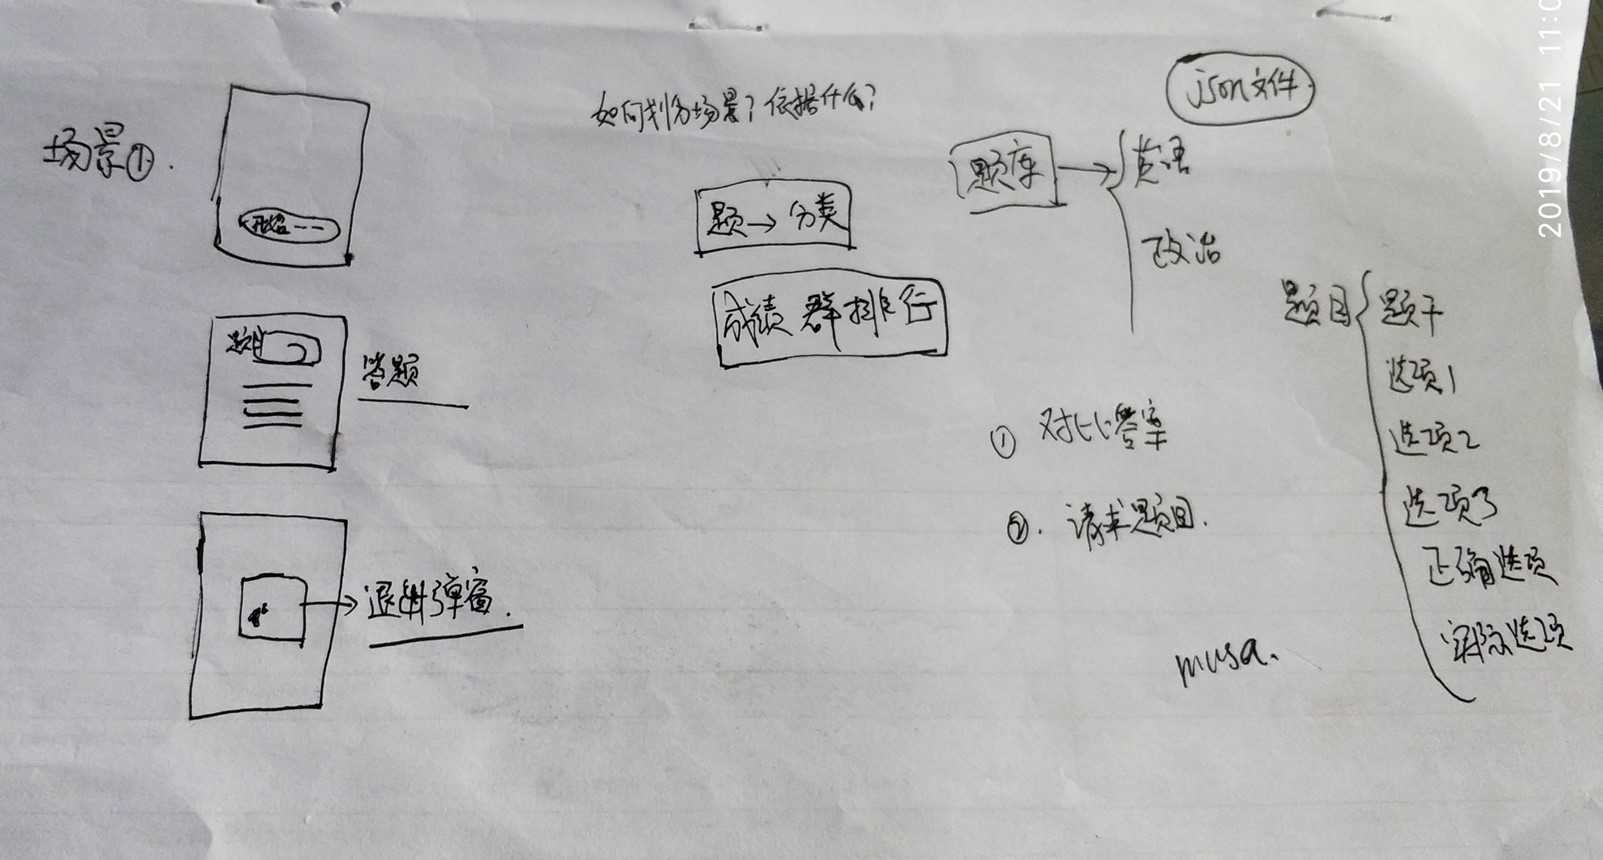 场景①.
开始
如何划分场景？依据什么？
json文件
题库
英语
政治
题→分类
成绩 群排行
题目
答题
题目
题干
选项1
选项2
选项3
正确选项
实际选项
① 对比答案
②. 请求题目.
退出弹窗.
musa.
2019/8/21 11:0